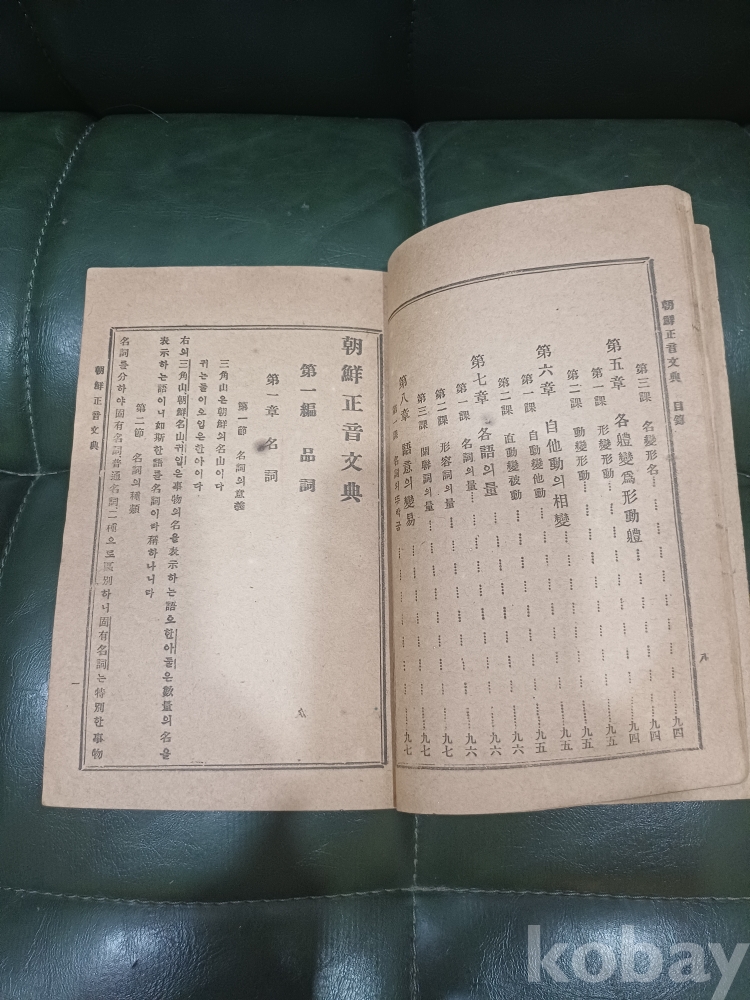 朝鮮正音文典 目第
第三課 名變形名 九四
第五章 各軆變爲形動軆 九四
第一課 形變形動 九五
第二課 動變形動 九五
第六章 自他動의相變 九五
第一課 自動變他動 九六
第二課 直動變被動 九六
第七章 各語의量 九六
第一課 名詞의量 九六
第二課 形容詞의量 九七
第三課 關聯詞의量 九七
第八章 語意의變易 九七
朝鮮正音文典
第一編 品詞
第一章 名詞
第一節 名詞의意義
三角山은朝鮮의名山이다
귀는둘이오입은한아이다
右의三角山朝鮮名山귀입은事物의名을表示하는語오한아둘은數量의名을
表示하는語이니如斯한語를名詞이라稱하나니다
第二節 名詞의種類
名詞를分하야固有名詞普通名詞二種으로區別하니固有名詞는特別한事物
朝鮮正音文典
一
kobay